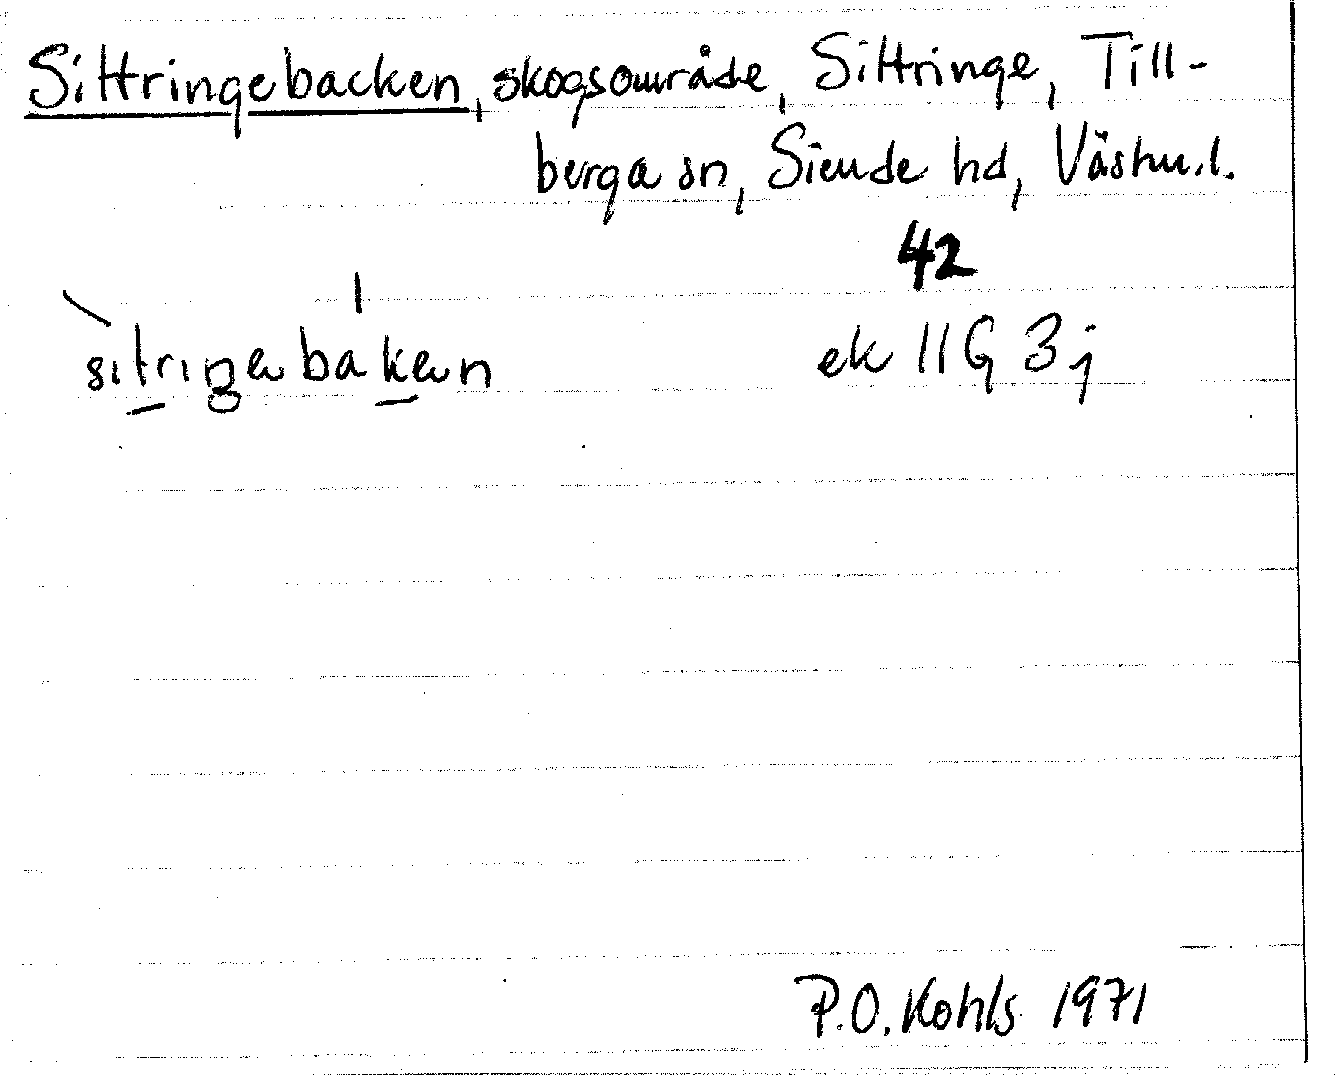 Sittringebacken, skogsområde, Sittringe, Till-
berga sn, Siende hd, Västm.l.
42
sitriŋebaken
ek 11G 3j
P.O. Kohls 1971